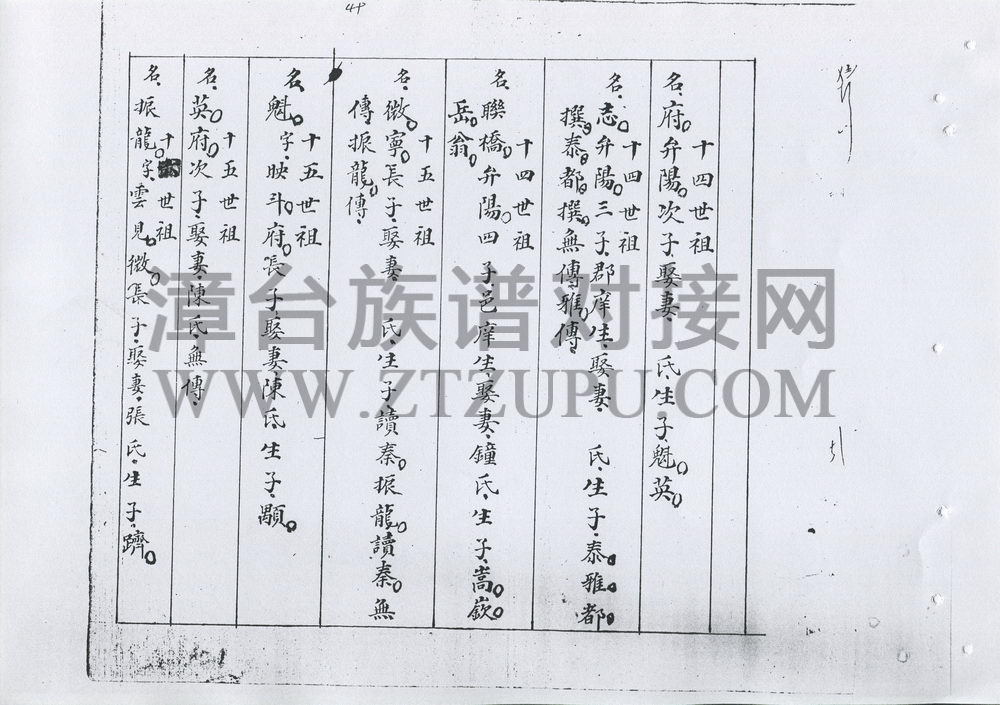 十四世祖
名府弁陽次子娶妻 氏生子魁英
十四世祖
名志弁陽三子郡庠生娶妻 氏生子泰雅都
撰泰都撰無傳雅傳
十四世祖
名聯橋弁陽四子邑庠生娶妻鐘氏生子嵩嶔
岳翁
十五世祖
名微寧長子娶妻 氏生子讀秦振龍讀秦無
傳振龍傳
十五世祖
名魁字映斗府長子娶妻陳氏生子顒
十五世祖
名英府次子娶妻陳氏無傳
十 世祖
名振龍字雲見微長子娶妻張氏生子躋
漳台族谱对接网
WWW.ZTZUPU.COM